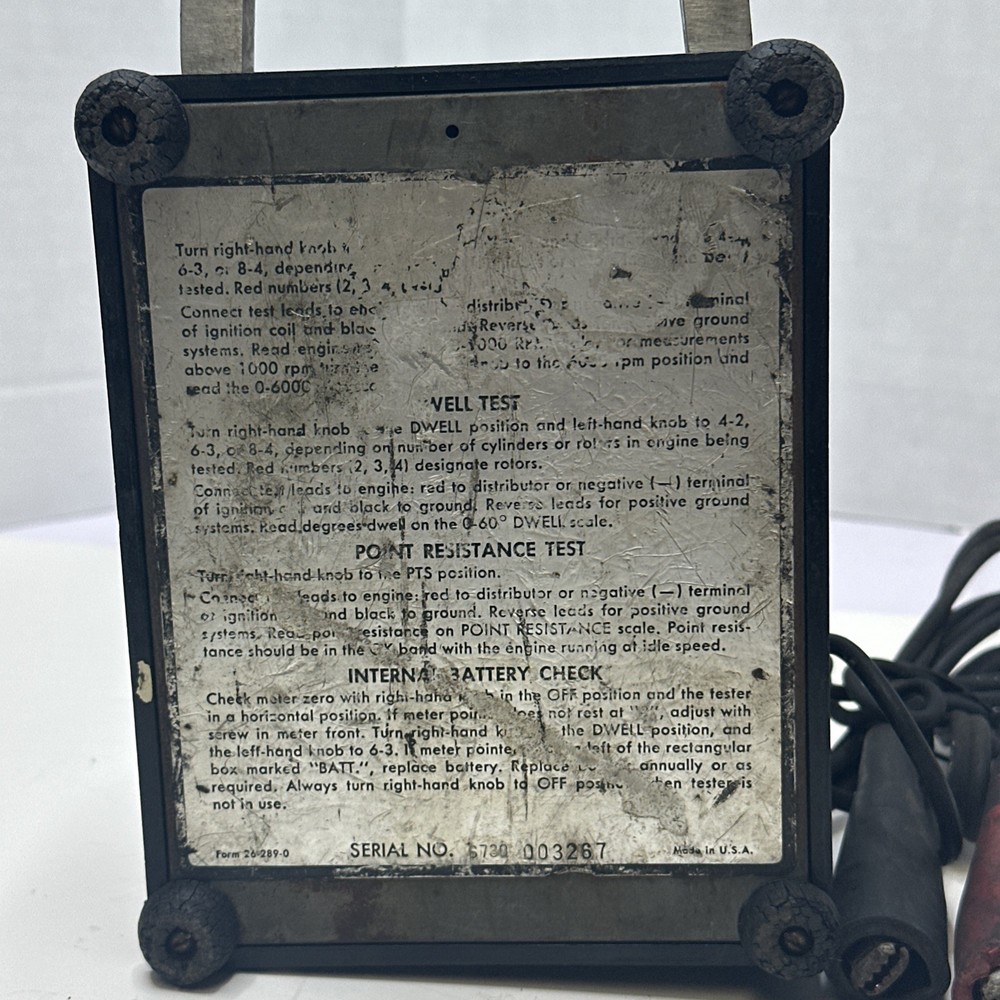 Turn right-hand knob
6-3, or 8-4, depending
tested. Red numbers (2, 3, 4,
Connect test leads to terminal
of ignition coil and Reverse ground
systems. Read for measurements
above 1000 rpm to the rpm position and
read the 0-6000
TEST
Turn right-hand knob DWELL position and left-hand knob to 4-2,
6-3, or 8-4, depending on number of cylinders or rotors in engine being
tested. Red numbers (2, 3, 4) designate rotors.
Connect test leads to engine: red to distributor or negative (—) terminal
of ignition and black to ground. Reverse leads for positive ground
systems. Read degrees dwell on the 0-60° DWELL scale.
POINT RESISTANCE TEST
Turn right-hand knob to the PTS position.
Connect leads to engine: red to distributor or negative (—) terminal
of ignition and black to ground. Reverse leads for positive ground
systems. Read point resistance on POINT RESISTANCE scale. Point resis-
tance should be in the band with the engine running at idle speed.
INTERNAL BATTERY CHECK
Check meter zero with right-hand knob in the OFF position and the tester
in a horizontal position. If meter pointer does not rest at adjust with
screw in meter front. Turn right-hand the DWELL position, and
the left-hand knob to 6-3. If meter pointer left of the rectangular
box marked "BATT.", replace battery. Replace annually or as
required. Always turn right-hand knob to OFF position when tester is
not in use.
Form 26-289-0 SERIAL NO. 003267 Made in U.S.A.